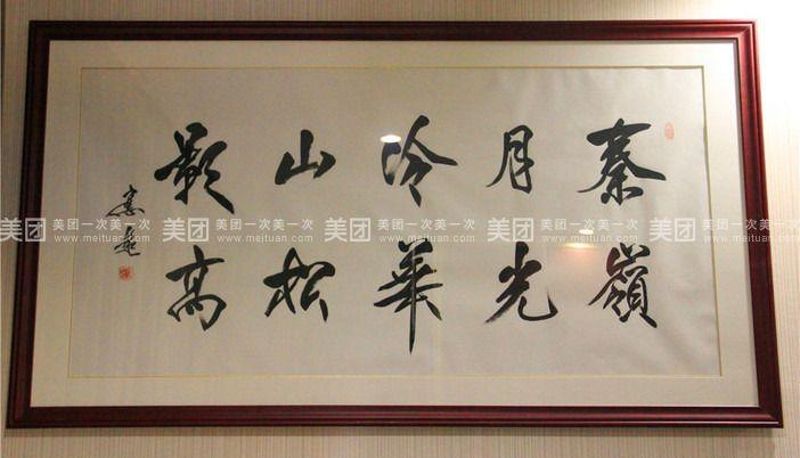 秦嶺
月光
冷華
山松
影高
美团 美团一次美一次 www.meituan.com
美团 美团一次美一次 www.meituan.com
美团 美团一次美一次 www.meituan.com
美团 美团一次美一次 www.meituan.com
美团 美团一次美一次 www.meituan.com